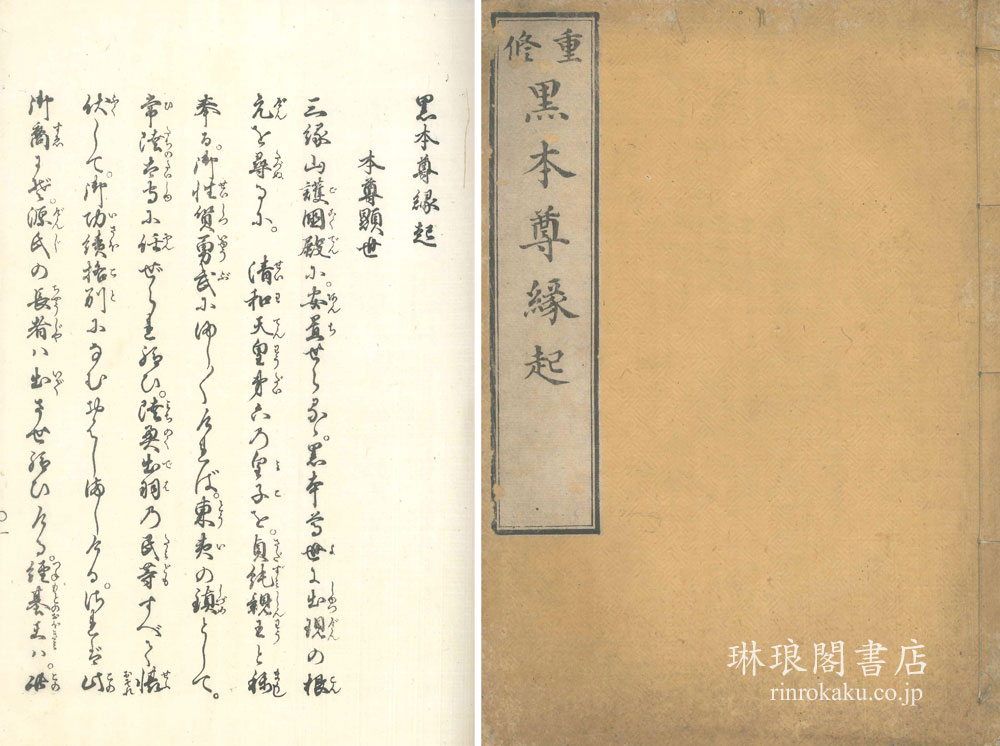 重修
黒本尊縁起
黒本尊縁起
本尊顯世
三縁山護國殿に安置せらるゝ。黒本尊世に出現の根
元を尋るに。清和天皇第六の皇子を。貞純親王と稱
奉る。御性質勇武にましましければ。東夷の鎮として。
常陸太守に任ぜられ給ひ。陸奥出羽の民等すべて懼
伏して。御功績格別になむおはしましける。されば此
御裔にぞ。源氏の長者ハ出させ給ひける。經基王ハ。此
琳琅閣書店
rinrokaku.co.jp